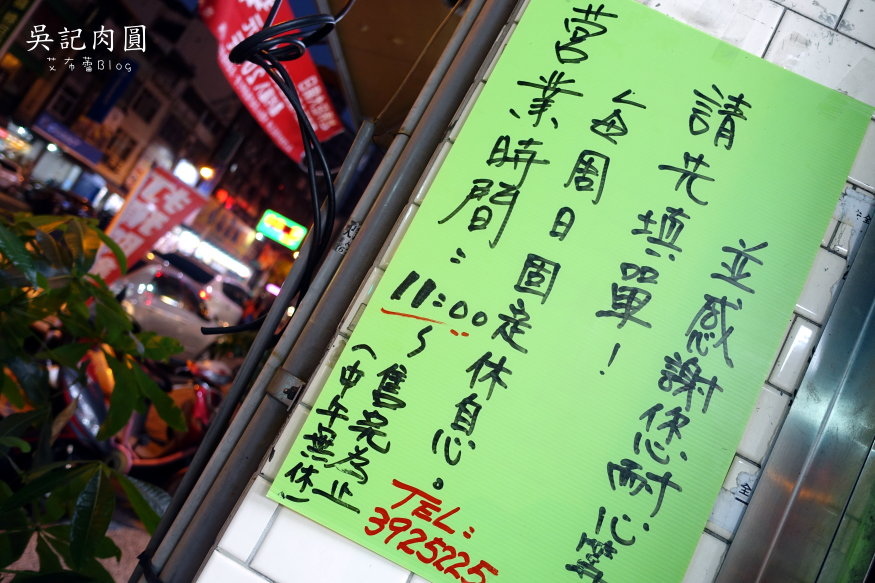 吳記肉圓
艾布蕾Blog
請先填單!
並感謝您耐心等
每周日固定休息。
營業時間:11:00~售完為止
(中午無休)
TEL:
3925225